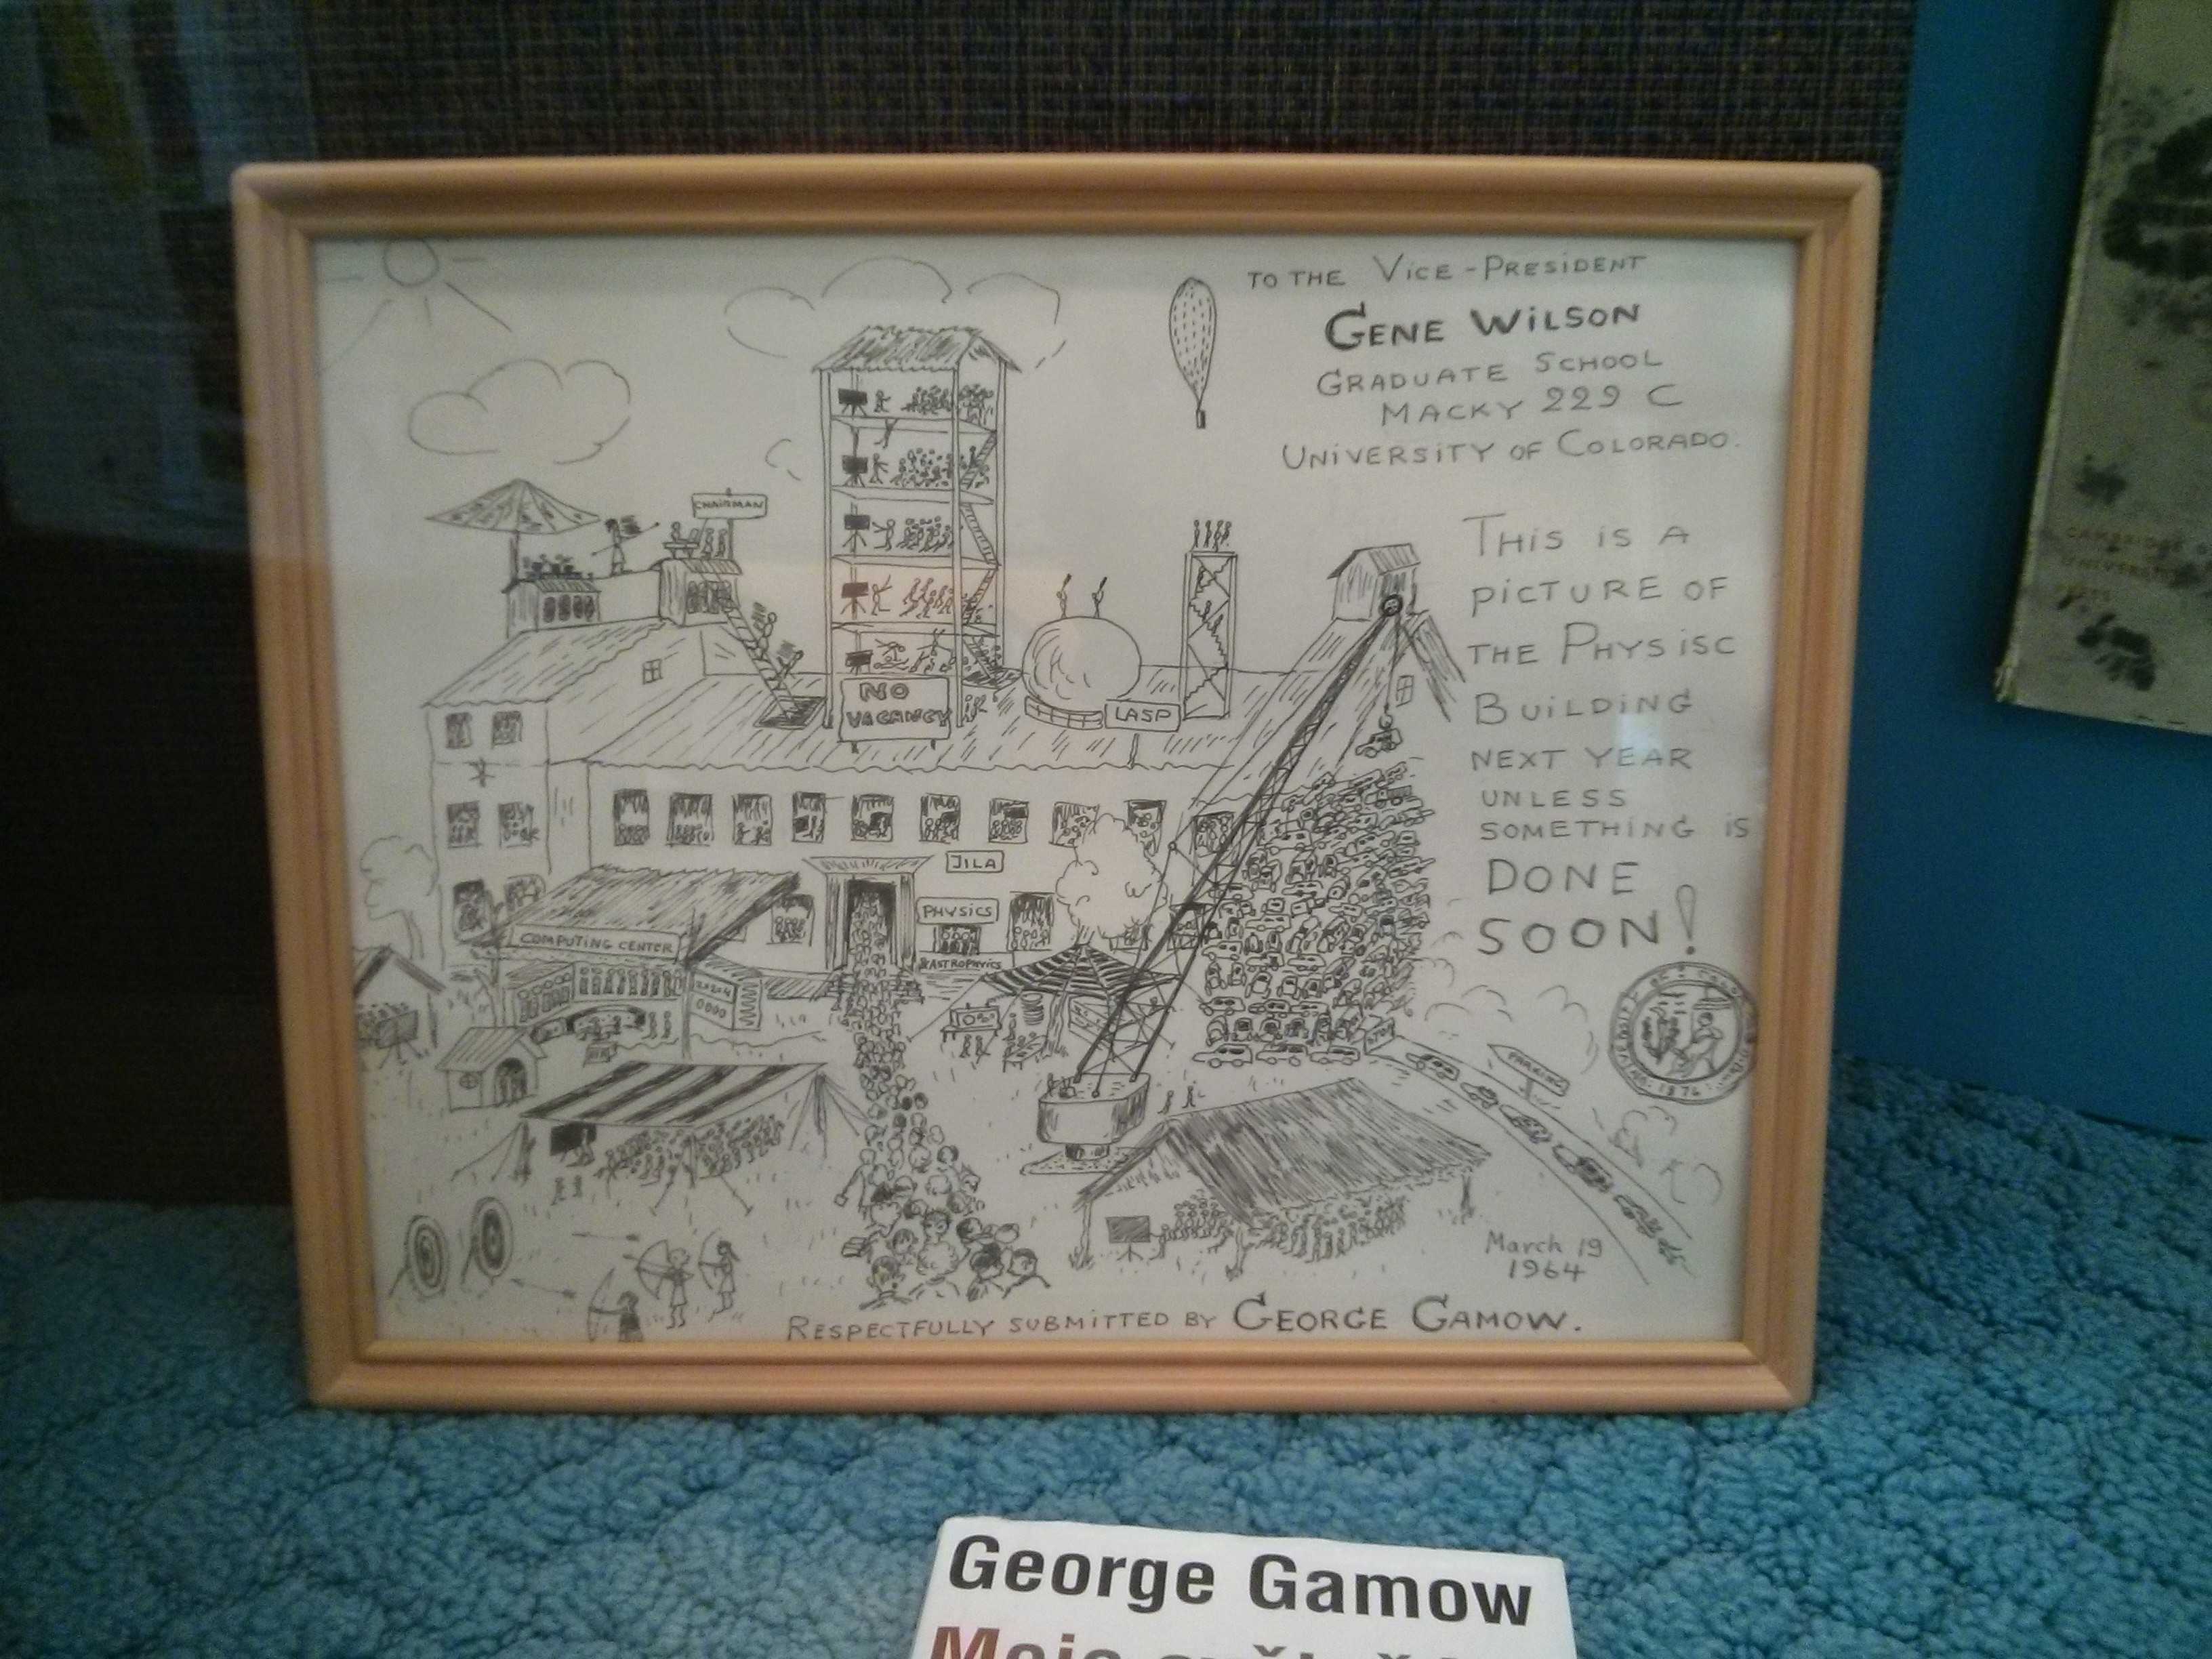 TO THE VICE-PRESIDENT
GENE WILSON
GRADUATE SCHOOL
MACKY 229 C
UNIVERSITY OF COLORADO.
THIS IS A
PICTURE OF
THE PHYSISC
BUILDING
NEXT YEAR
UNLESS
SOMETHING IS
DONE
SOON!
CHAIRMAN
NO
VACANCY
LASP
JILA
PHYSICS
& ASTROPHYICS
COMPUTING CENTER
PARKING
STOP
1876
March 19
1964
RESPECTFULLY SUBMITTED BY GEORGE GAMOW.
CAMBRIDGE
UNIVERSITY
George Gamow